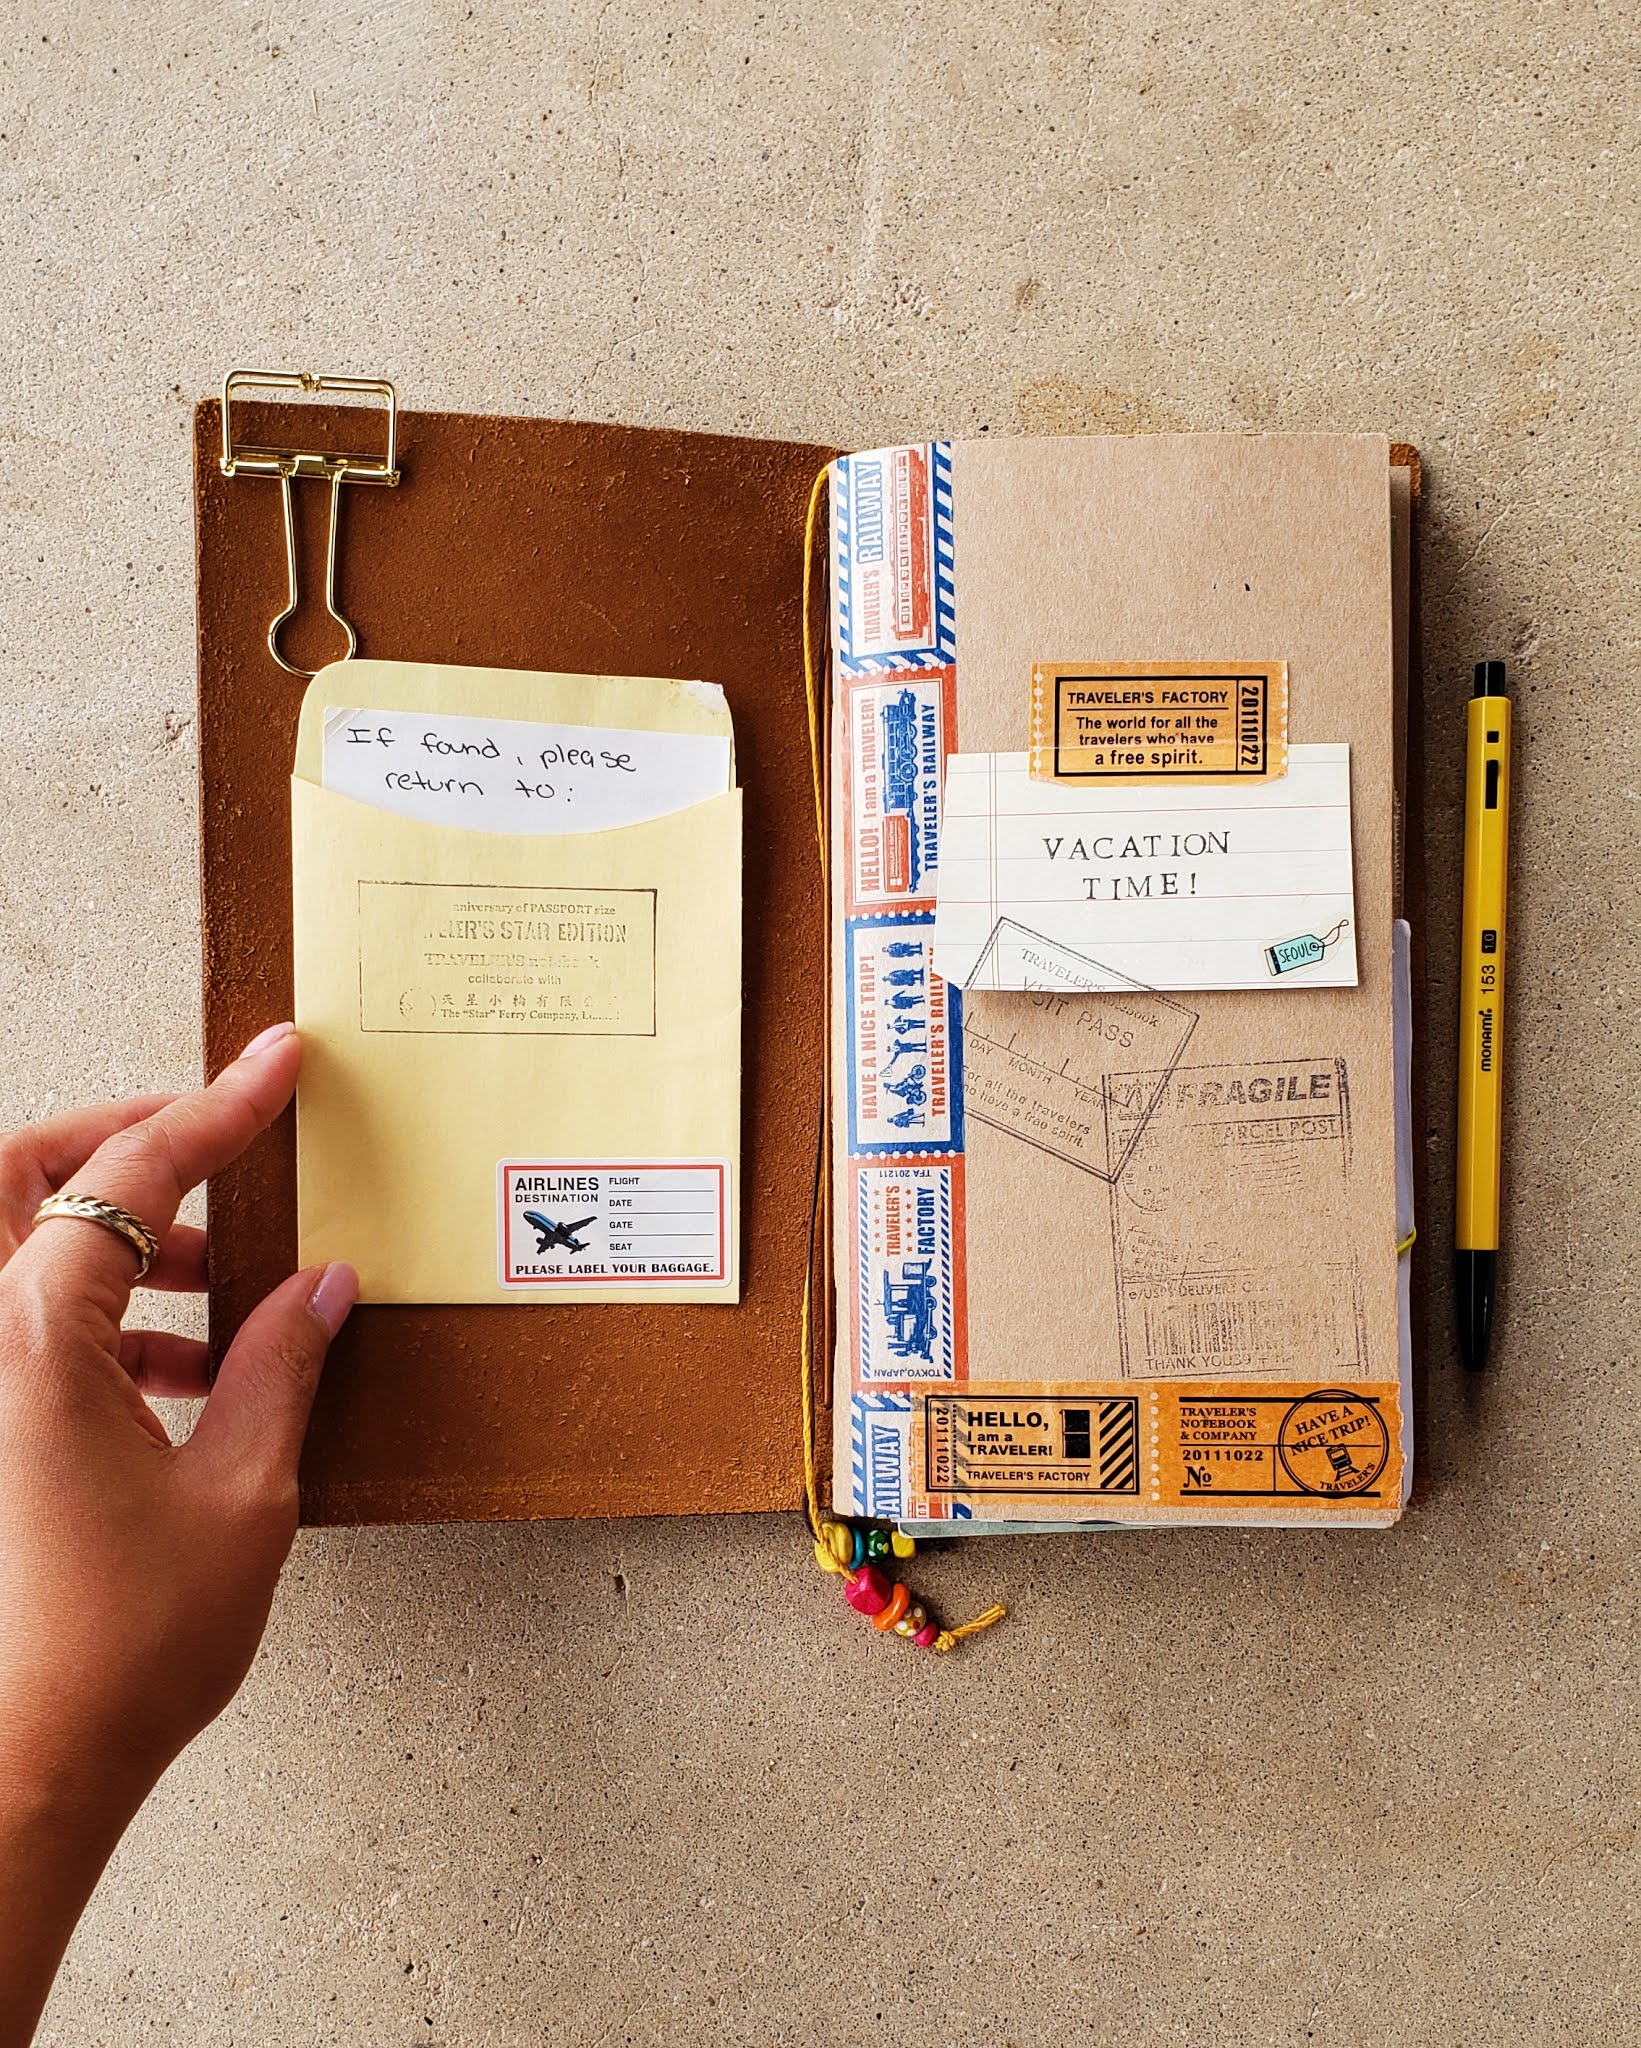 If found, please
return to:
anniversary of PASSPORT size
LER'S STAR EDITION
TRAVELER'S notebook
collaborate with
天星小輪有限公
The "Star" Ferry Company,
AIRLINES
DESTINATION
FLIGHT
DATE
GATE
SEAT
PLEASE LABEL YOUR BAGGAGE.
TRAVELER'S RAILWAY
HELLO! I am a TRAVELER!
TRAVELER'S RAILWAY
HAVE A NICE TRIP!
TRAVELER'S RAILWAY
TFA 201211
TRAVELER'S
FACTORY
TOKYO, JAPAN
RAILWAY
TRAVELER'S FACTORY
The world for all the
travelers who have
a free spirit.
20111022
VACATION
TIME!
SEOUL
TRAVELER'S notebook
VISIT PASS
DAY MONTH YEAR
For all the travelers
who have a free spirit.
FRAGILE
PARCEL POST
USPS DELIVERY
THANK YOU
20111022
HELLO,
I am a
TRAVELER!
TRAVELER'S FACTORY
TRAVELER'S
NOTEBOOK
& COMPANY
20111022
No
HAVE A
NICE TRIP!
TRAVELER'S
monami 153 1.0